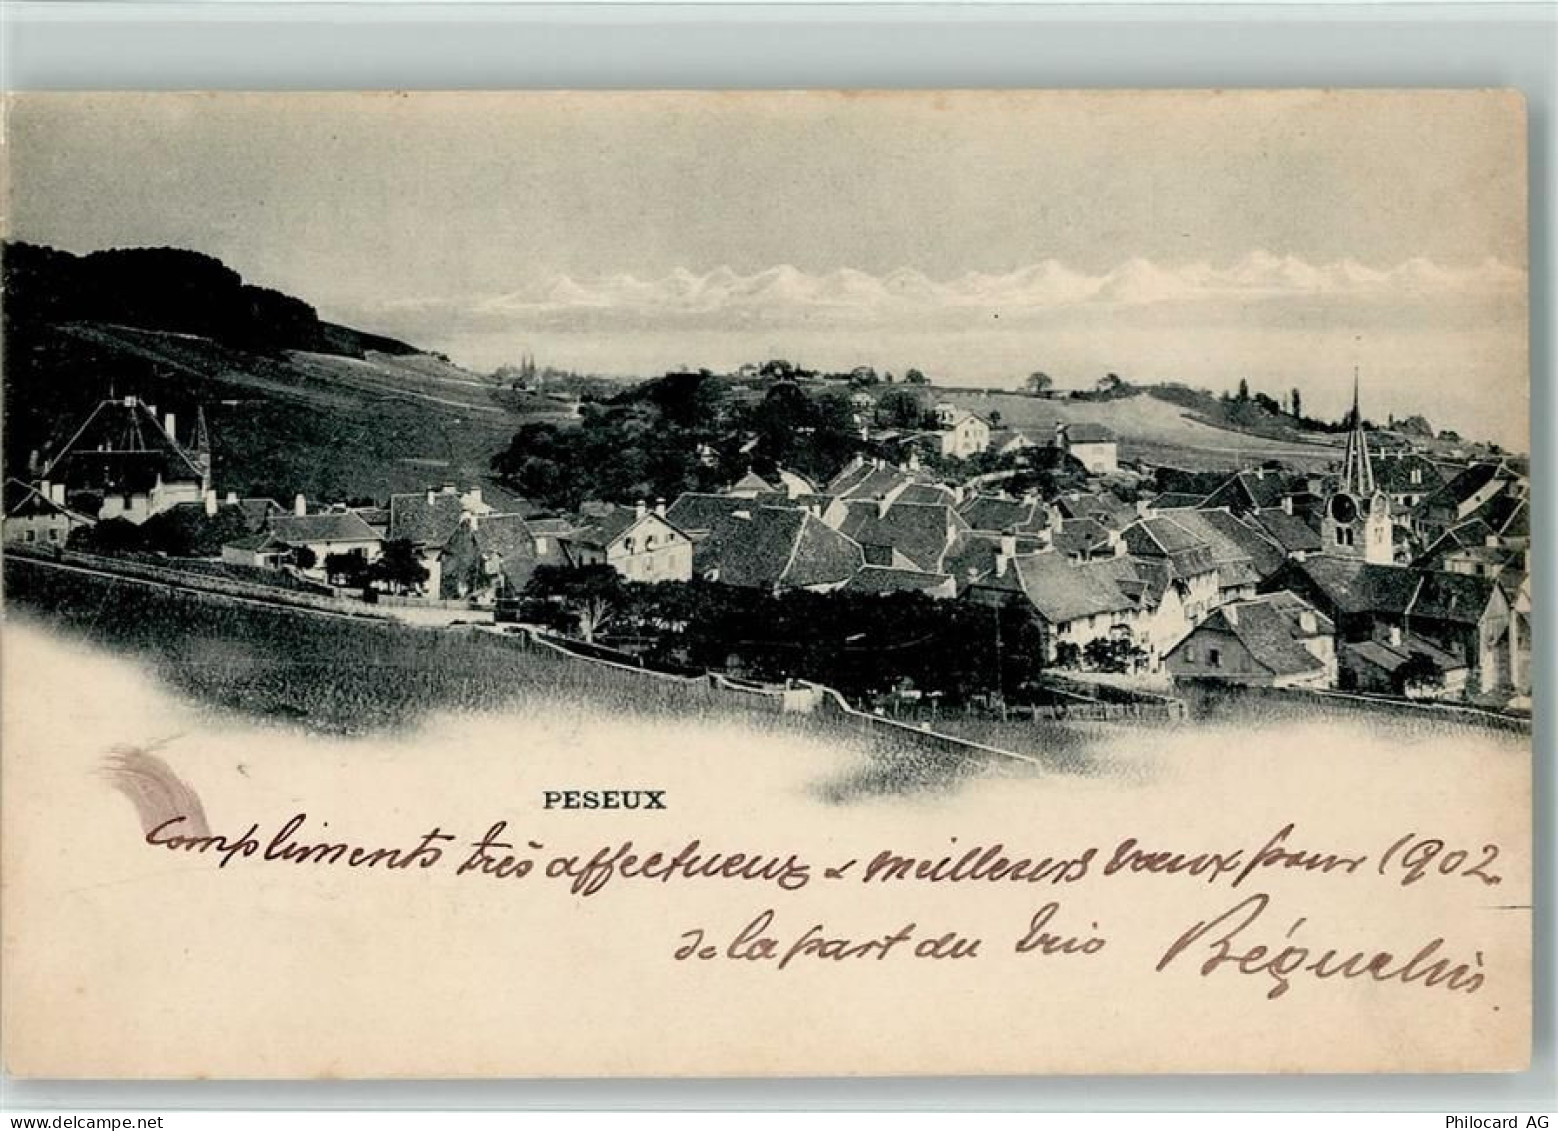 PESEUX
Compliments très affectueux & meilleurs vœux pour 1902.
de la part du trio Béguelin
delcampe.net
Philocard AG